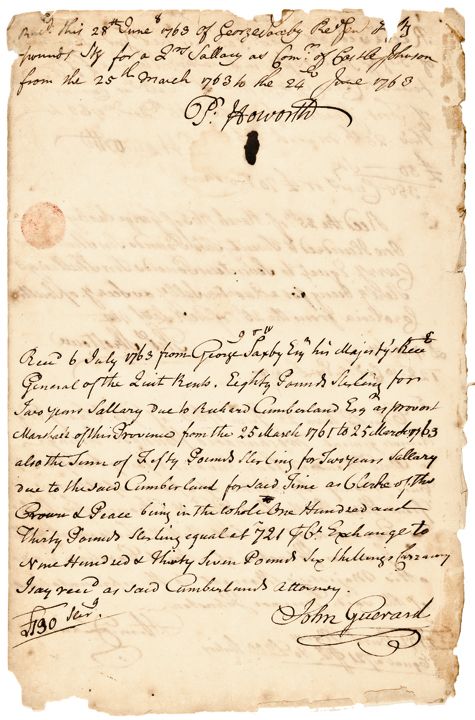 Recd this 28th June 1763 of George Saxby Recr Genl
pounds Stg for a Qrs Sallary as Comr of Castle Johnson
from the 25th March 1763 to the 24 June 1763
Pr. Howorth
Recd 6 July 1763 from George Saxby Esqr his Majesty's Recr
General of the Quit Rents. Eighty Pounds Sterling for
Two years Sallary due to Richard Cumberland Esqr as provost
Marshall of this Province from the 25 March 1761 to 25 March 1763
also the Sum of Fifty Pounds sterling for Two years Sallary
due to the said Cumberland for said Time as Clerke of the
Crown & Peace being in the whole One Hundred and
Thirty Pounds Sterling equal at 721 Exchange to
Nine Hundred & thirty Seven Pounds Six Shillings Currency
I say recd as said Cumberlands Attorney.
£130 Sterg.
John Guerard